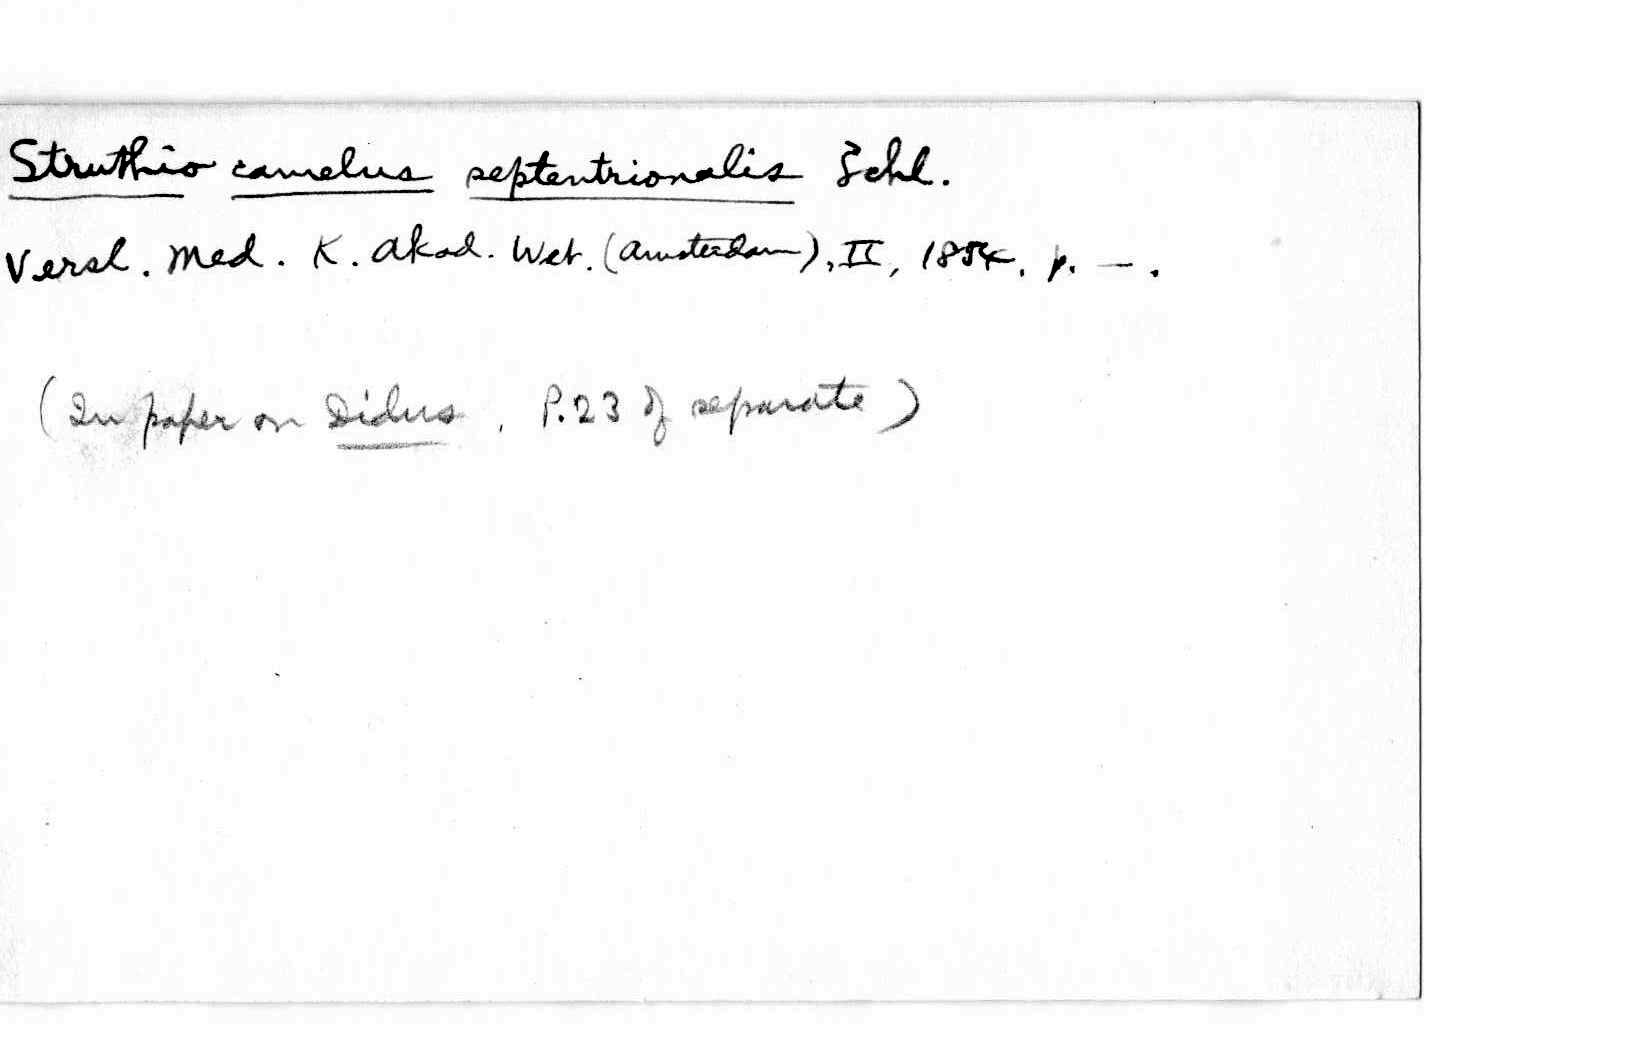 Struthio camelus septentrionalis Schl.
Versl. Med. K. Akad. Wet. (Amsterdam), II, 1854, p. — .
(In paper on Didus, P.23 of separate)